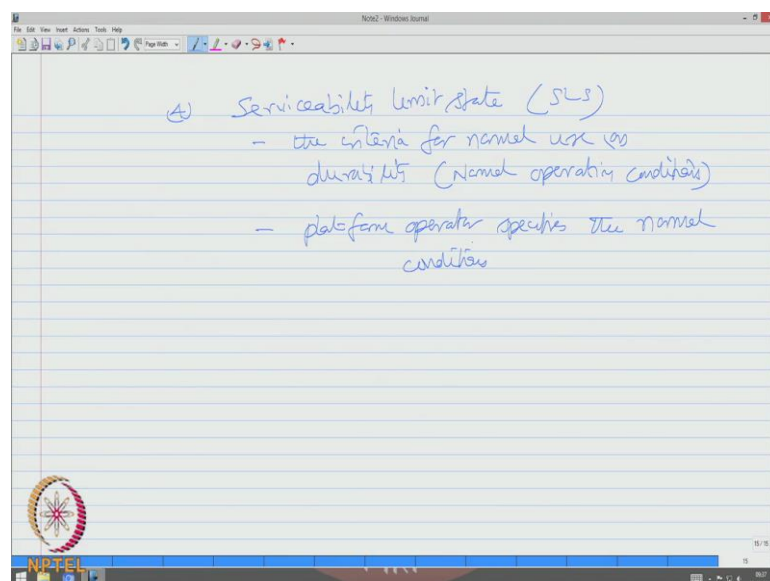 Note2 - Windows Journal
File Edit View Insert Actions Tools Help
Page Width
4) Serviceability limit state (SLS)
- the criteria for normal use (or)
durability (Normal operating conditions)
- platform operator specifies the normal
conditions
15 / 15
15
NPTEL
09:37